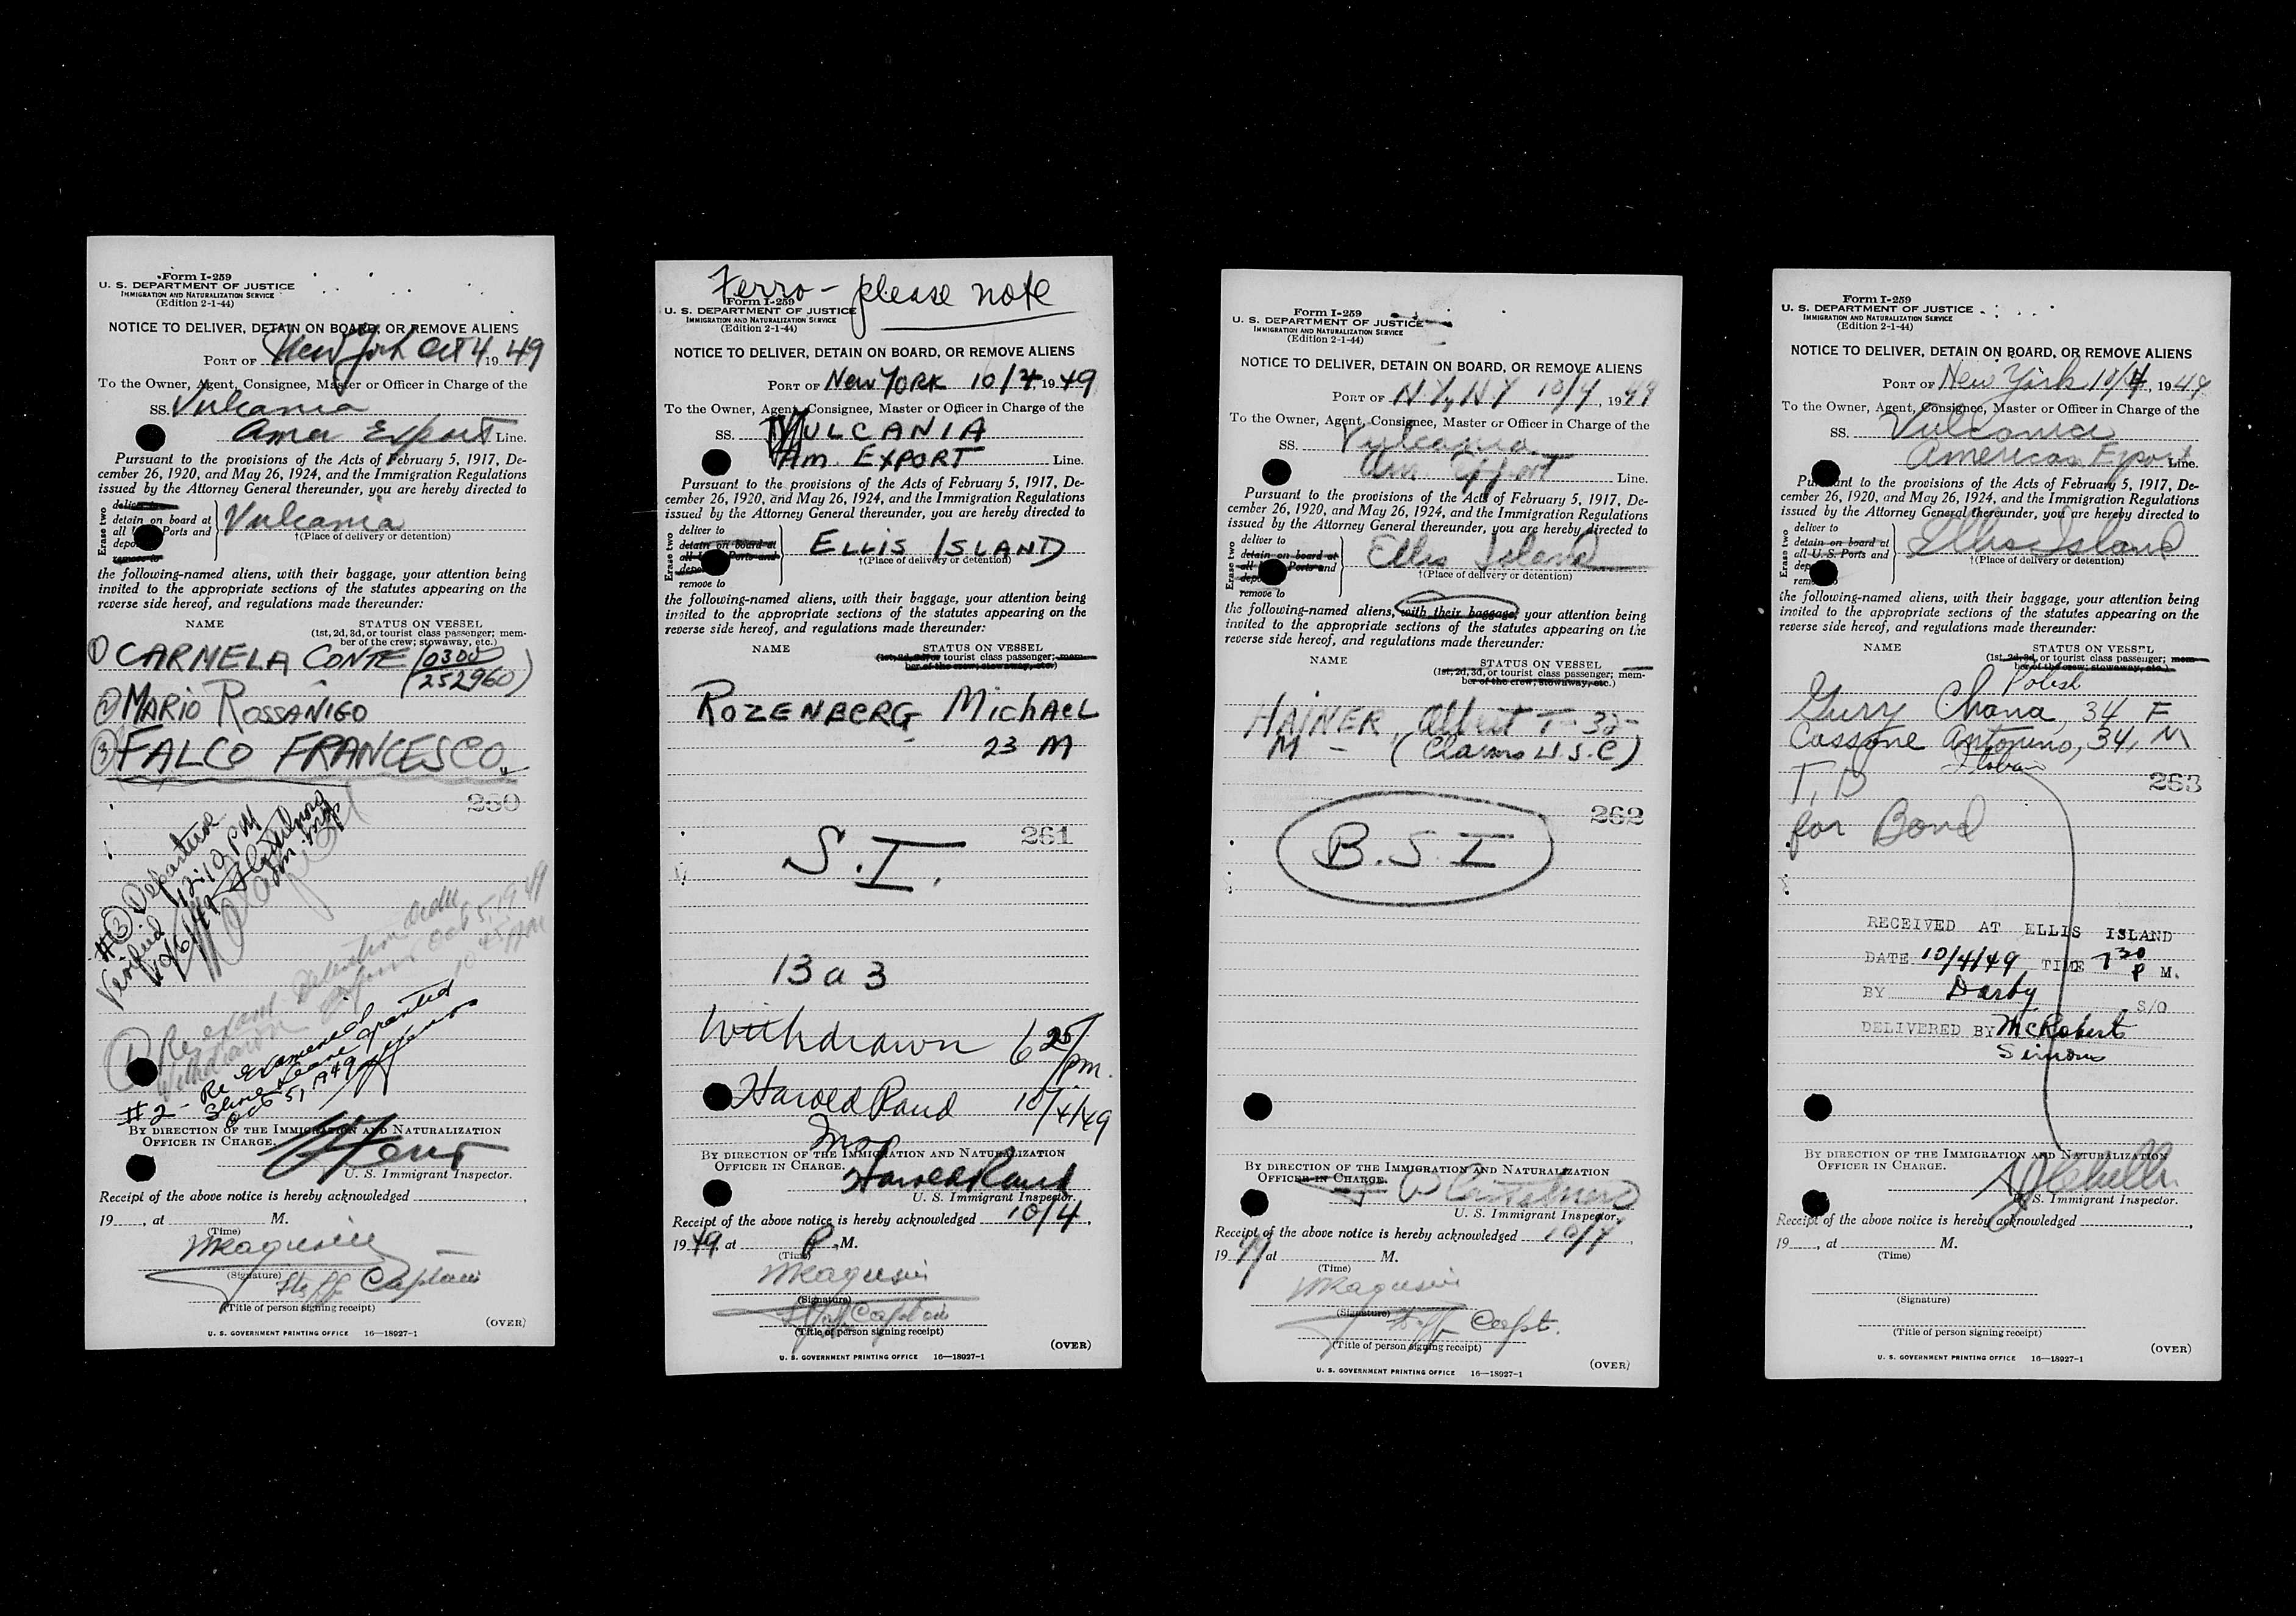 Form I-259
U. S. DEPARTMENT OF JUSTICE
IMMIGRATION AND NATURALIZATION SERVICE
(Edition 2-1-44)
NOTICE TO DELIVER, DETAIN ON BOARD, OR REMOVE ALIENS
PORT OF New York Oct 4, 1949
To the Owner, Agent, Consignee, Master or Officer in Charge of the
SS. Vulcania
Amer Export Line.
Pursuant to the provisions of the Acts of February 5, 1917, De-
cember 26, 1920, and May 26, 1924, and the Immigration Regulations
issued by the Attorney General thereunder, you are hereby directed to
Erase two
detain on board at
all Ports and
Vulcania
†(Place of delivery or detention)
remove to
the following-named aliens, with their baggage, your attention being
invited to the appropriate sections of the statutes appearing on the
reverse side hereof, and regulations made thereunder:
NAME STATUS ON VESSEL
(1st, 2d, 3d, or tourist class passenger; mem-
ber of the crew; stowaway, etc.)
① CARMELA CONTE (0300
252960)
② MARIO ROSSANIGO
③ FALCO FRANCESCO
260
#③ Departure
Verified 12:10 PM
10/6/49
Detention Order
Withdrawn Oct 5, 1949
10 45 AM
#2 - Re examined
Shore leave granted
Oct 5, 1949
BY DIRECTION OF THE IMMIGRATION AND NATURALIZATION
OFFICER IN CHARGE.
U. S. Immigrant Inspector.
Receipt of the above notice is hereby acknowledged
19 , at M.
(Time)
(Signature)
Staff Captain
(Title of person signing receipt)
(OVER)
U. S. GOVERNMENT PRINTING OFFICE 16—18927-1
Ferro - please note
Form I-259
U. S. DEPARTMENT OF JUSTICE
IMMIGRATION AND NATURALIZATION SERVICE
(Edition 2-1-44)
NOTICE TO DELIVER, DETAIN ON BOARD, OR REMOVE ALIENS
PORT OF New YORK 10/4 1949
To the Owner, Agent, Consignee, Master or Officer in Charge of the
SS. VULCANIA
Am. EXPORT Line.
Pursuant to the provisions of the Acts of February 5, 1917, De-
cember 26, 1920, and May 26, 1924, and the Immigration Regulations
issued by the Attorney General thereunder, you are hereby directed to
Erase two
deliver to
detain on board at
Ports and
ELLIS ISLAND
†(Place of delivery or detention)
remove to
the following-named aliens, with their baggage, your attention being
invited to the appropriate sections of the statutes appearing on the
reverse side hereof, and regulations made thereunder:
NAME STATUS ON VESSEL
(1st, 2d, 3d, or tourist class passenger; mem-
ber of the crew; stowaway, etc.)
ROZENBERG MichAeL
23 M
261
S.I.
13 a 3
Withdrawn 6 25/pm.
Harold Rand 10/4/49
Insp
BY DIRECTION OF THE IMMIGRATION AND NATURALIZATION
OFFICER IN CHARGE.
Harold Rand
U. S. Immigrant Inspector.
Receipt of the above notice is hereby acknowledged 10/4,
1949, at P M.
(Time)
(Signature)
Staff Captain
(Title of person signing receipt)
(OVER)
U. S. GOVERNMENT PRINTING OFFICE 16—18927-1
Form I-259
U. S. DEPARTMENT OF JUSTICE
IMMIGRATION AND NATURALIZATION SERVICE
(Edition 2-1-44)
NOTICE TO DELIVER, DETAIN ON BOARD, OR REMOVE ALIENS
PORT OF N.Y, NY 10/4, 1949
To the Owner, Agent, Consignee, Master or Officer in Charge of the
SS. Vulcania
Am. Export Line.
Pursuant to the provisions of the Acts of February 5, 1917, De-
cember 26, 1920, and May 26, 1924, and the Immigration Regulations
issued by the Attorney General thereunder, you are hereby directed to
Erase two
deliver to
detain on board at
Ports and
Ellis Island
†(Place of delivery or detention)
remove to
the following-named aliens, with their baggage, your attention being
invited to the appropriate sections of the statutes appearing on the
reverse side hereof, and regulations made thereunder:
NAME STATUS ON VESSEL
(1st, 2d, 3d, or tourist class passenger; mem-
ber of the crew; stowaway, etc.)
HAJNER, Albert T- 32-
M - (Claims U.S.C)
262
B.S.I
BY DIRECTION OF THE IMMIGRATION AND NATURALIZATION
OFFICER IN CHARGE.
U. S. Immigrant Inspector.
Receipt of the above notice is hereby acknowledged 10/4,
1949 at M.
(Time)
(Signature)
Staff Capt.
(Title of person signing receipt)
(OVER)
U. S. GOVERNMENT PRINTING OFFICE 16—18927-1
Form I-259
U. S. DEPARTMENT OF JUSTICE
IMMIGRATION AND NATURALIZATION SERVICE
(Edition 2-1-44)
NOTICE TO DELIVER, DETAIN ON BOARD, OR REMOVE ALIENS
PORT OF New York 10/4, 1949
To the Owner, Agent, Consignee, Master or Officer in Charge of the
SS. Vulcania
American Export Line.
Pursuant to the provisions of the Acts of February 5, 1917, De-
cember 26, 1920, and May 26, 1924, and the Immigration Regulations
issued by the Attorney General thereunder, you are hereby directed to
Erase two
deliver to
detain on board at
all U.S. Ports and
Ellis Island
†(Place of delivery or detention)
the following-named aliens, with their baggage, your attention being
invited to the appropriate sections of the statutes appearing on the
reverse side hereof, and regulations made thereunder:
NAME STATUS ON VESSEL
(1st, 2d, 3d, or tourist class passenger; mem-
ber of the crew; stowaway, etc.)
Polish
Gury Chana, 34 F
Cassone Antonino, 34, M
Italian
T, D
263
for Bond
RECEIVED AT ELLIS ISLAND
DATE 10/4/49 TIME 7 30 P M.
BY Darby S/O
DELIVERED BY McRoberts
Simons
BY DIRECTION OF THE IMMIGRATION AND NATURALIZATION
OFFICER IN CHARGE.
U. S. Immigrant Inspector.
Receipt of the above notice is hereby acknowledged
19 , at M.
(Time)
(Signature)
(Title of person signing receipt)
(OVER)
U. S. GOVERNMENT PRINTING OFFICE 16—18927-1